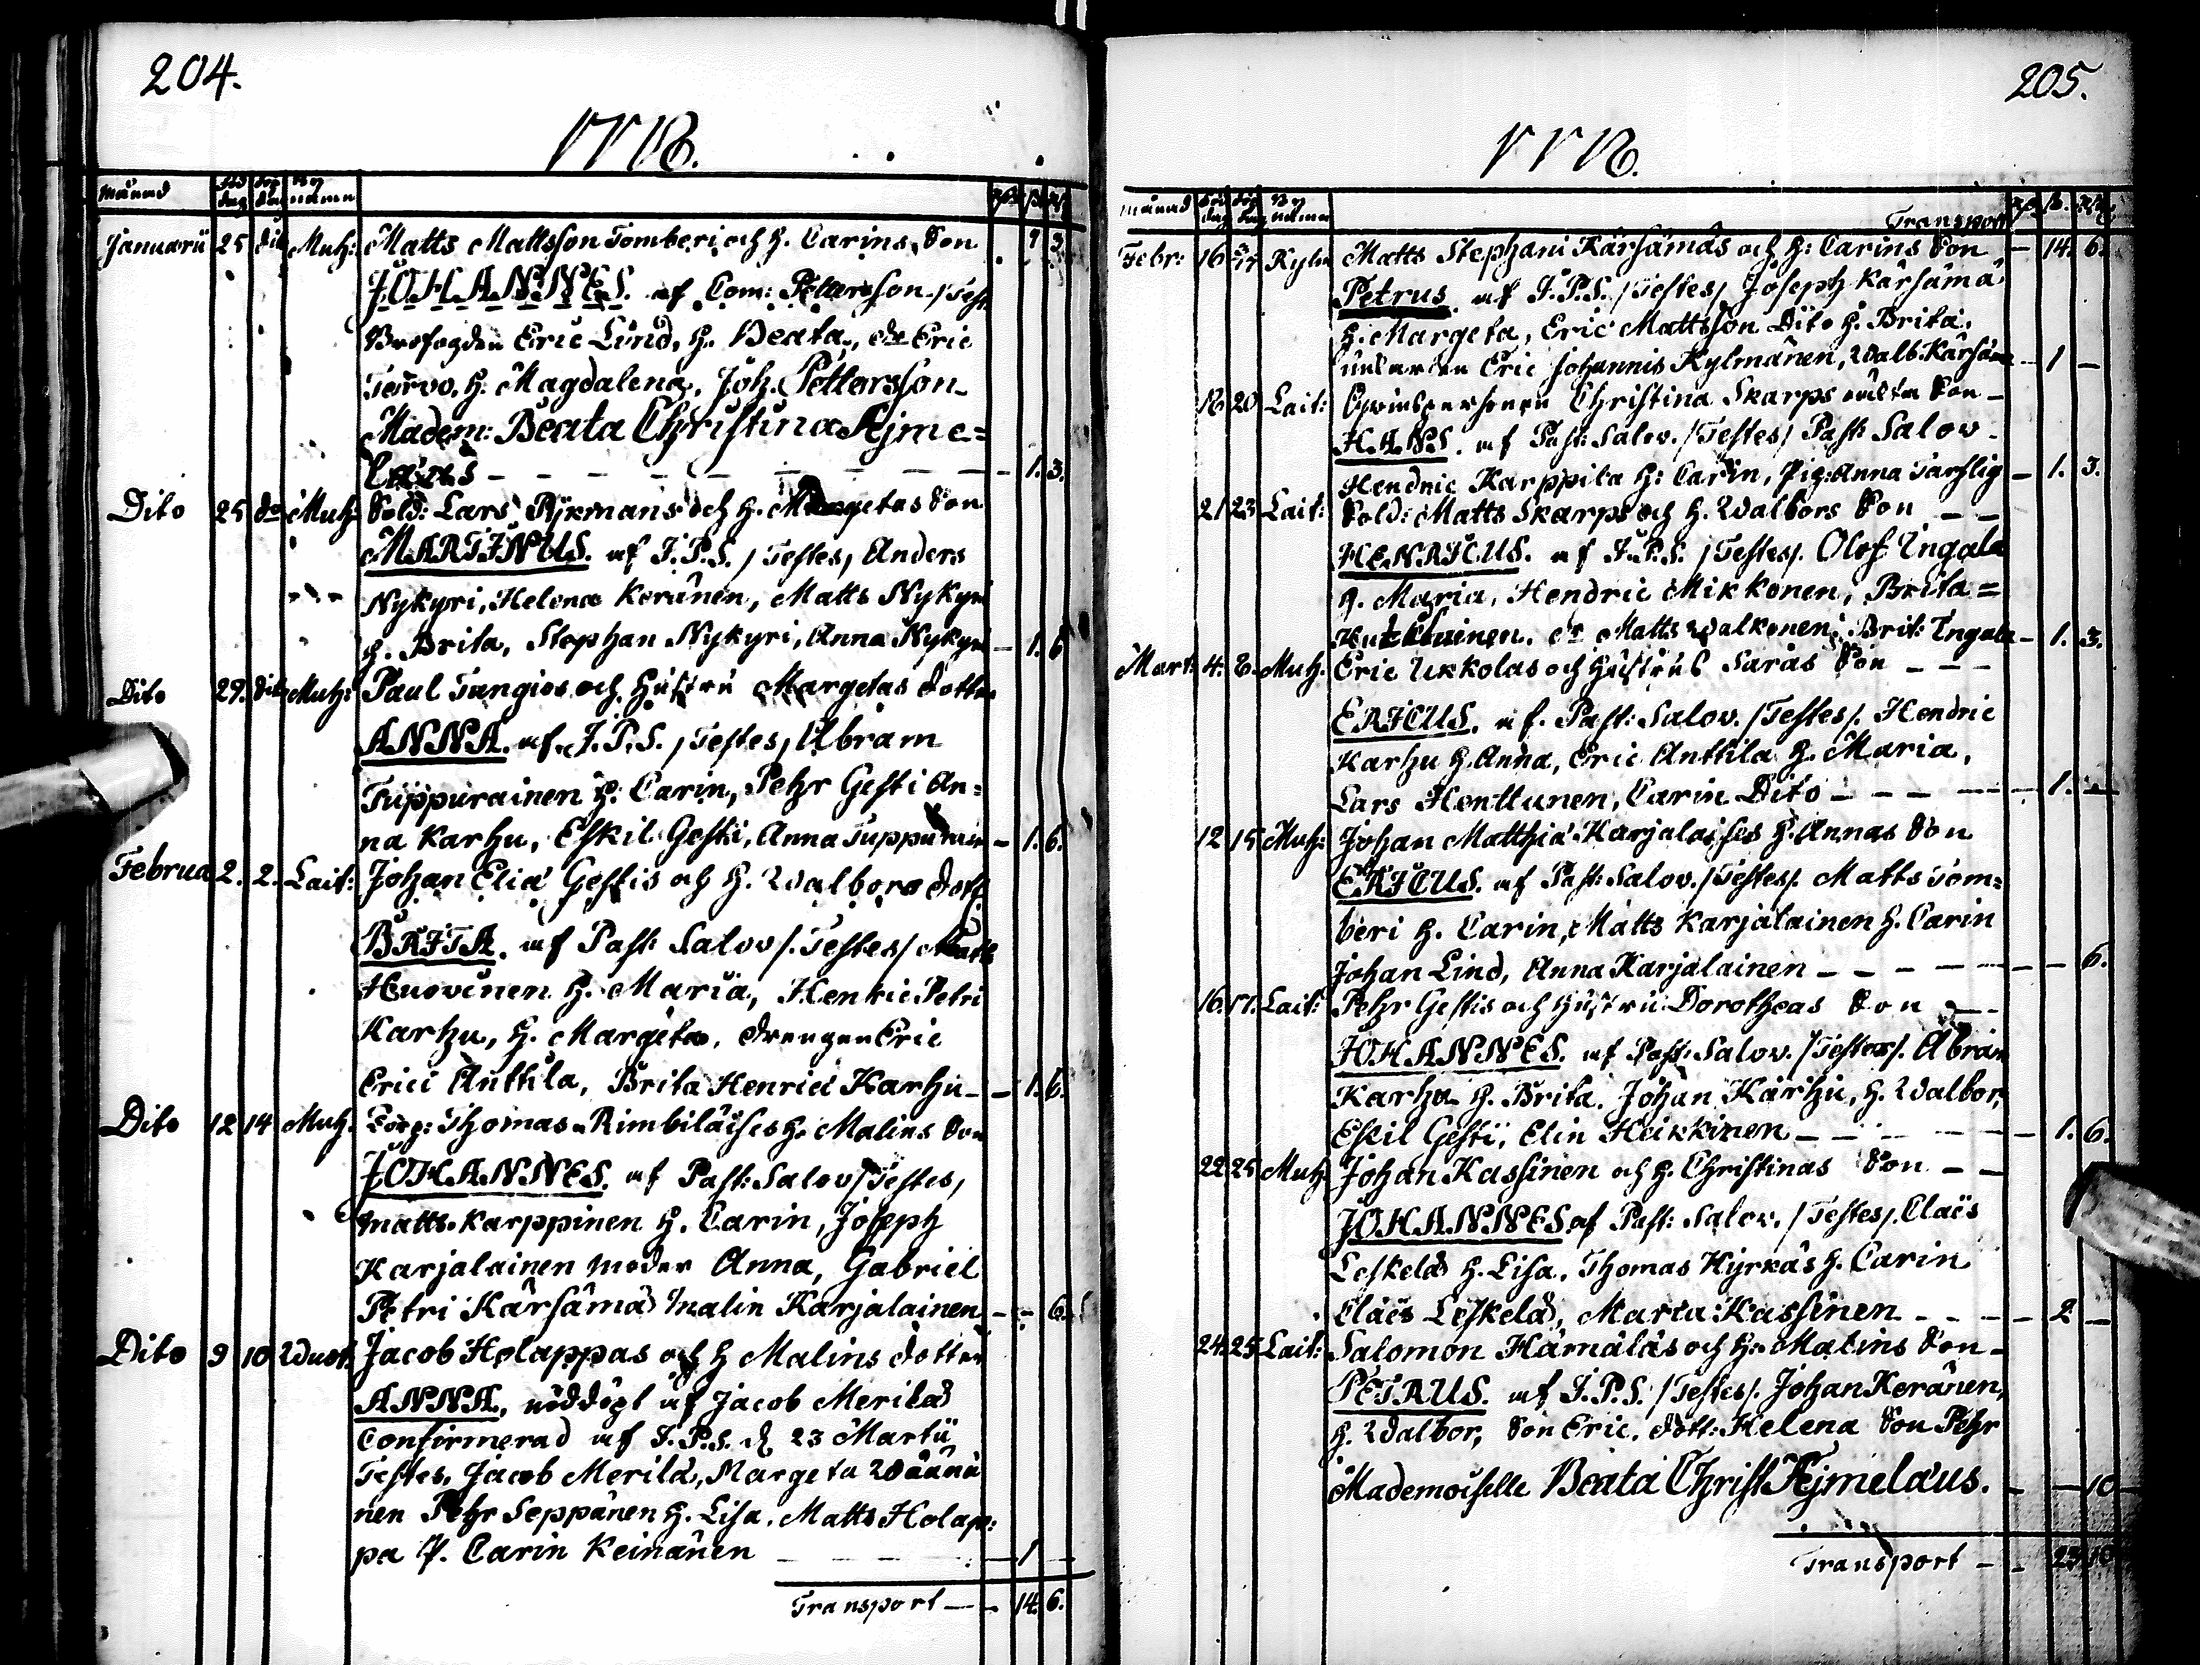 204.
1778.
Månad Föd dag Döp dag By namn
Januarii 25 dit Muh: Matts Mattsson Tomberi och H. Carins Son 9 3.
JOHANNES. af Com: Pettersson /Test
Brofogden Eric Lind, H. Beata, Eric
Torvo. H. Magdalena, Joh. Pettersson
Madem: Beata Christina Ajme=
læus 1. 3.
Dito 25 do Muh: Sold: Lars Rykmans och H. Margetas Son
MARTINUS. af J.P.S. /Testes/ Anders
Nykyri, Helena Keränen, Matts Nykyri
H. Brita, Stephan Nykyri, Anna Nykyri 1. 6
Dito 29. dit Muh: Paul Tangios och Hustru Margetas dotter
ANNA. af J.P.S. /Testes/ Abram
Tuppurainen H: Carin, Pehr Gesti An=
na Karhu, Eskil Gesti, Anna Tuppurain 1. 6.
Februa 2. 2. Lait: Johan Eliæ Gestis och H. Walbors dott
BRITA. af Past: Salov /Testes/ Matts
Huovinen H. Maria, Henric Petri
Karhu, H. Margeta, drengen Eric
Erici Anttila, Brita Henrici Karhu 1. 6.
Dito 12 14 Muh. Torp: Thomas Rimbiläises H. Malins Son
JOHANNES. af Past: Salov /Testes/
Matts Karppinen H. Carin, Joseph
Karjalainen moder Anna, Gabriel
Petri Kärsämä Malin Karjalainen 6.
Dito 9 10 Wuot. Jacob Holappas och H Malins dotter
ANNA, nöddöpt af Jacob Merilä
Confirmerad af J.P.S. d 23 Martii
Testes, Jacob Merilä, Margeta Väänä
nen Pehr Seppänen H. Lisa. Matts Holap:
pa P. Carin Keinänen 1
Transport 14. 6.
205.
1778.
Månad Föd dag Döp dag By namn
Transport
Febr: 16 Kylm Matts Stephani Kärsämäs och H: Carins Son 14. 6.
Petrus. af J.P.S. /Testes/ Joseph Kärsämä
H. Margeta, Eric Mattsson Dito H. Brita,
Eric Johannis Kylmänen, Walb. Kärsäm 1
18 20 Lait: Qvinspersonen Christina Skarps oäkta Son
HANS. af Past: Salov. /Testes/ Past: Salov
Hendric Karppila H: Carin, Pig: Anna 1. 3.
21 23 Lait: Sold: Matts Skarps och H. Walbors Son
HENRICUS. af J.P.S. /Testes/. Olof Ingala
H. Maria, Hendric Mikkonen, Brita=
Matts Walkonen, Brit: Ingala 1. 3.
Mart: 4. 8. Muh. Eric Ukkolas och Hustrus Saras Son
ERICUS. af. Past: Salov. /Testes/. Hendric
Karhu H. Anna, Eric Anttila H. Maria,
Lars Henttunen, Carin Dito 1.
12 15 Muh: Johan Matthiæ Karjalaises H. Annas Son
ERICUS. af Past: Salov. /Testes/. Matts Tom=
beri H. Carin, Matts Karjalainen H. Carin
Johan Lind, Anna Karjalainen 6.
16. 17. Lait: Pehr Gestis och Hustru Dorotheas Son
JOHANNES. af Past: Salov. /Testes/. Abram
Karhu H. Brita. Johan Karhu, H. Walbor,
Eskil Gesti, Elin Heikkinen 1. 6.
22 25 Muh. Johan Kassinen och H. Christinas Son
JOHANNES af Past: Salov. /Testes/. Claës
Leskelä H. Lisa. Thomas Hyrkäs H. Carin
Claës Leskelä, Maria Kassinen 2
24. 25 Lait: Salomon Hämäläs och H. Malins Son
PETRUS. af J.P.S. /Testes/. Johan Keränen,
H. Walbor, Son Eric, dott: Helena Son Pehr
Mademoiselle Beata Christ Ajmelæus. 10
Transport 23 10